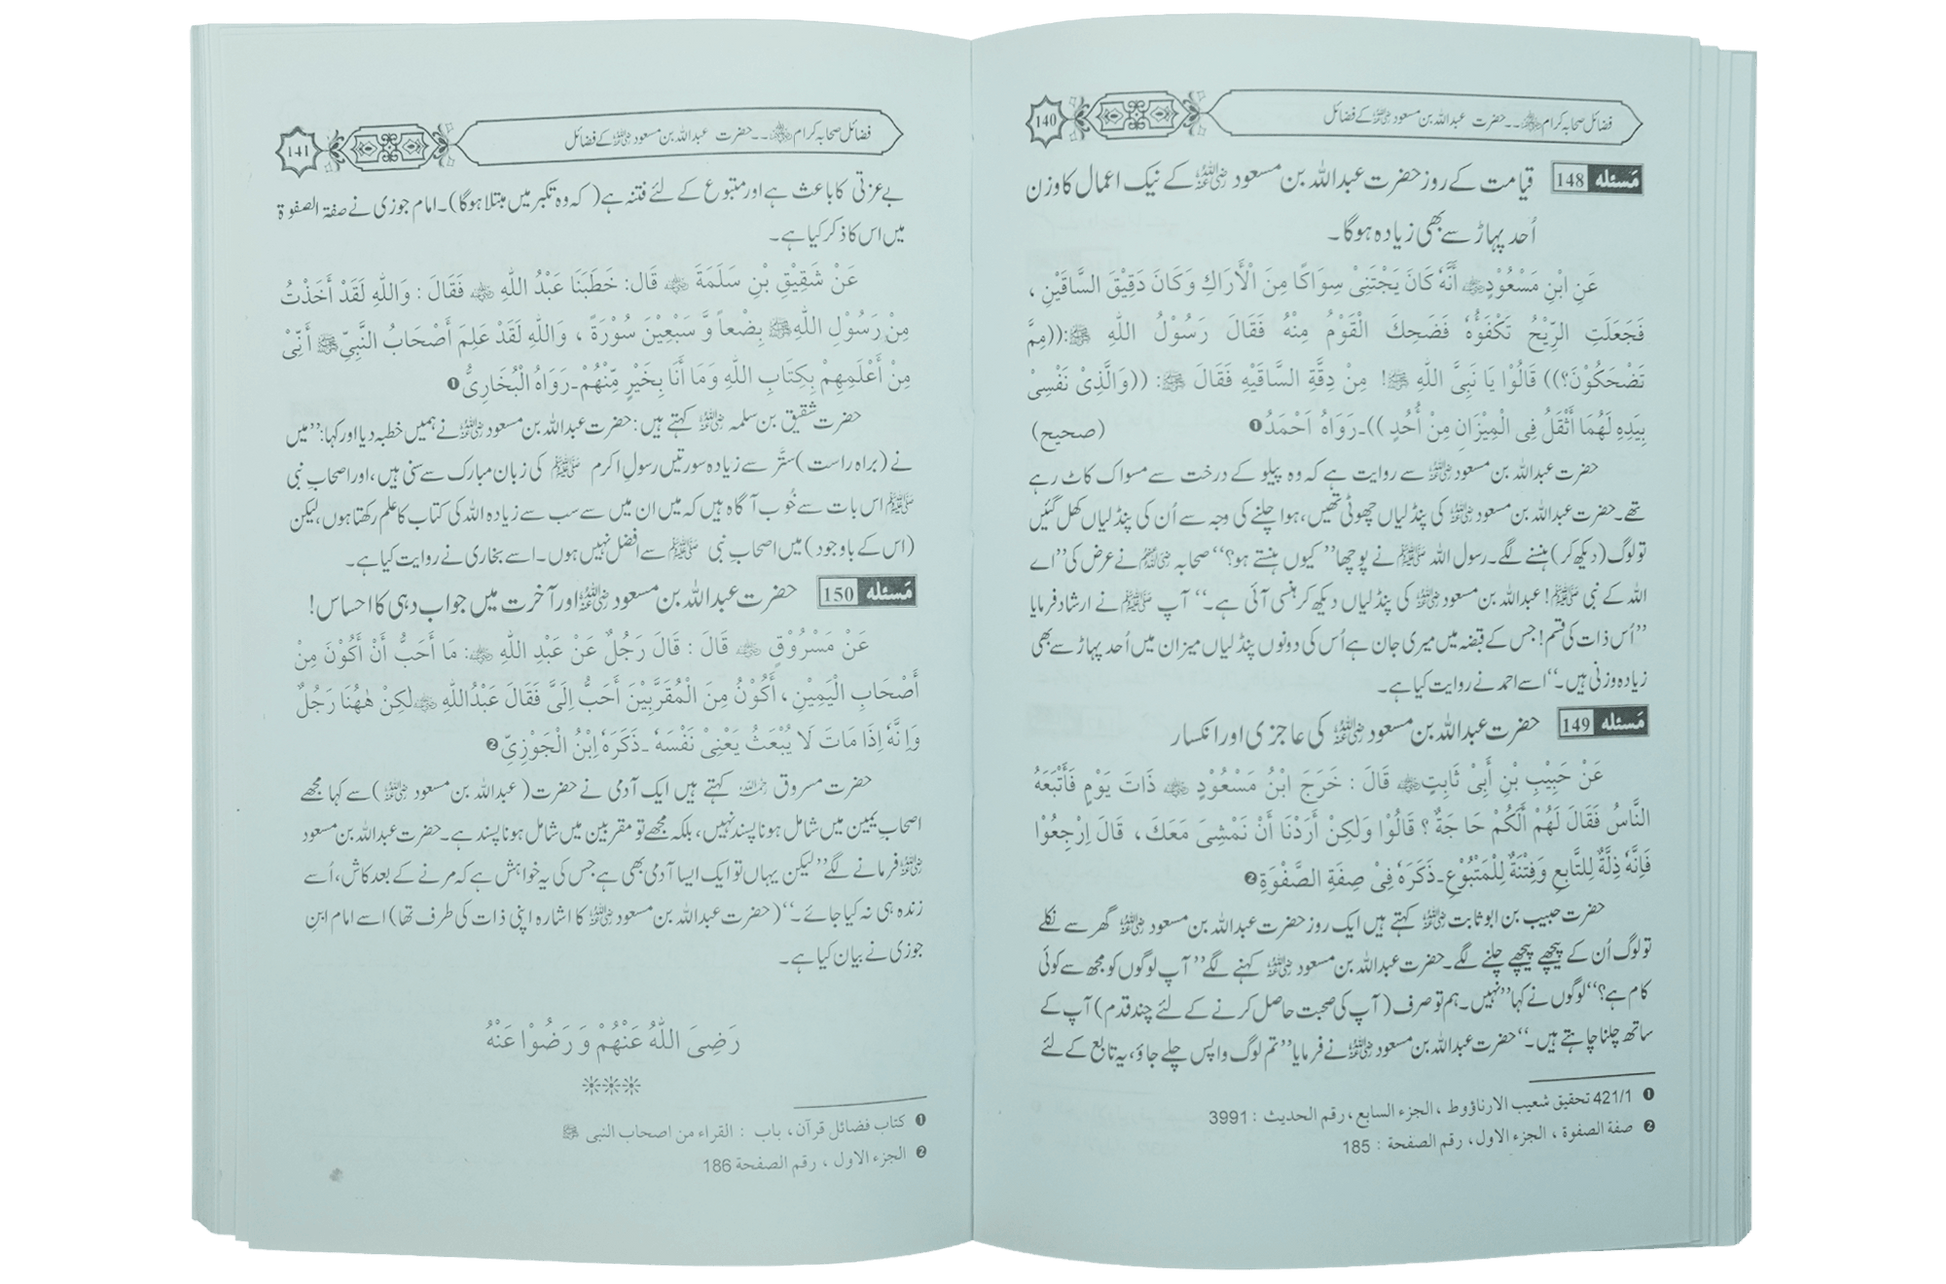 فضائل صحابہ کرام ﷢۔۔حضرت عبداللہ بن مسعود ﷜ کے فضائل
140
مَسئله 148 قیامت کے روز حضرت عبداللہ بن مسعود ﷜ کے نیک اعمال کا وزن
اُحد پہاڑ سے بھی زیادہ ہوگا۔
عَنِ ابْنِ مَسْعُوْدٍ ﷜ أَنَّهُ كَانَ يَجْتَنِيْ سِوَاكًا مِنَ الْأَرَاكِ وَكَانَ دَقِيْقَ السَّاقَيْنِ ،
فَجَعَلَتِ الرِّيْحُ تَكْفَؤُهُ فَضَحِكَ الْقَوْمُ مِنْهُ فَقَالَ رَسُوْلُ اللهِ ﷺ:((مِمَّ
تَضْحَكُوْنَ؟)) قَالُوْا يَا نَبِيَّ اللهِ ﷺ! مِنْ دِقَّةِ السَّاقَيْهِ فَقَالَ ﷺ: ((وَالَّذِيْ نَفْسِيْ
بِيَدِهِ لَهُمَا أَثْقَلُ فِي الْمِيْزَانِ مِنْ أُحُدٍ ))۔رَوَاهُ اَحْمَدُ❶ (صحیح)
حضرت عبداللہ بن مسعود ﷜ سے روایت ہے کہ وہ پیلو کے درخت سے مسواک کاٹ رہے
تھے۔حضرت عبداللہ بن مسعود ﷜ کی پنڈلیاں چھوٹی تھیں،ہوا چلنے کی وجہ سے اُن کی پنڈلیاں کھل گئیں
تو لوگ (دیکھ کر) ہنسنے لگے۔رسول اللہ ﷺ نے پوچھا’’ کیوں ہنستے ہو؟‘‘صحابہ ﷢ نے عرض کی’’اے
اللہ کے نبی ﷺ! عبداللہ بن مسعود ﷜ کی پنڈلیاں دیکھ کر ہنسی آئی ہے۔‘‘ آپ ﷺ نے ارشاد فرمایا
’’اُس ذات کی قسم! جس کے قبضہ میں میری جان ہے اُس کی دونوں پنڈلیاں میزان میں اُحد پہاڑ سے بھی
زیادہ وزنی ہیں۔‘‘اسے احمد نے روایت کیا ہے۔
مَسئله 149 حضرت عبداللہ بن مسعود ﷜ کی عاجزی اور انکسار
عَنْ حَبِيْبِ بْنِ أَبِيْ ثَابِتٍ ﷜ قَالَ : خَرَجَ ابْنُ مَسْعُوْدٍ ﷜ ذَاتَ يَوْمٍ فَأَتْبَعَهُ
النَّاسُ فَقَالَ لَهُمْ أَلَكُمْ حَاجَةٌ ؟ قَالُوْا وَلٰكِنْ أَرَدْنَا أَنْ نَمْشِيَ مَعَكَ ، قَالَ اِرْجِعُوْا
فَاِنَّهُ ذِلَّةٌ لِلتَّابِعِ وَفِتْنَةٌ لِلْمَتْبُوْعِ۔ذَكَرَهُ فِيْ صِفَةِ الصَّفْوَةِ❷
حضرت حبیب بن ابوثابت ﷜ کہتے ہیں ایک روز حضرت عبداللہ بن مسعود ﷜ گھر سے نکلے
تو لوگ اُن کے پیچھے پیچھے چلنے لگے۔حضرت عبداللہ بن مسعود ﷜ کہنے لگے’’ آپ لوگوں کو مجھ سے کوئی
کام ہے؟‘‘لوگوں نے کہا’’نہیں۔ہم تو صرف (آپ کی صحبت حاصل کرنے کے لئے چند قدم) آپ کے
ساتھ چلنا چاہتے ہیں۔‘‘حضرت عبداللہ بن مسعود ﷜ نے فرمایا’’تم لوگ واپس چلے جاؤ،یہ تابع کے لئے
❶ 421/1 تحقیق شعیب الارناؤوط ، الجزء السابع،رقم الحدیث : 3991
❷ صفة الصفوة ، الجزء الاول، رقم الصفحة : 185
فضائل صحابہ کرام ﷢۔۔حضرت عبداللہ بن مسعود ﷜ کے فضائل
141
بے عزتی کا باعث ہے اور متبوع کے لئے فتنہ ہے(کہ وہ تکبر میں مبتلا ہوگا)۔امام جوزی نے صفۃ الصفوۃ
میں اس کا ذکر کیا ہے۔
عَنْ شَقِيْقِ بْنِ سَلَمَةَ ﷜ قَالَ: خَطَبَنَا عَبْدُ اللهِ ﷜ فَقَالَ : وَاللهِ لَقَدْ أَخَذْتُ
مِنْ رَسُوْلِ اللهِ ﷺ بِضْعاً وَّ سَبْعِيْنَ سُوْرَةً ، وَاللهِ لَقَدْ عَلِمَ أَصْحَابُ النَّبِيِّ ﷺ أَنِّيْ
مِنْ أَعْلَمِهِمْ بِكِتَابِ اللهِ وَمَا أَنَا بِخَيْرٍ مِّنْهُمْ۔رَوَاهُ الْبُخَارِيُّ❶
حضرت شقیق بن سلمہ ﷜ کہتے ہیں:حضرت عبداللہ بن مسعود ﷜ نے ہمیں خطبہ دیا اور کہا:’’میں
نے (براہ راست)ستّر سے زیادہ سورتیں رسول اکرم ﷺ کی زبان مبارک سے سنی ہیں،اور اصحابِ نبی
ﷺ اس بات سے خُوب آگاہ ہیں کہ میں ان میں سے سب سے زیادہ اللہ کی کتاب کا علم رکھتا ہوں،لیکن
(اس کے باوجود)میں اصحابِ نبی ﷺ سے افضل نہیں ہوں۔اسے بخاری نے روایت کیا ہے۔
مَسئله 150 حضرت عبداللہ بن مسعود ﷜ اور آخرت میں جواب دہی کا احساس!
عَنْ مَسْرُوْقٍ ﷜ قَالَ : قَالَ رَجُلٌ عَنْ عَبْدِ اللهِ ﷜: مَا أُحِبُّ أَنْ أَكُوْنَ مِنْ
أَصْحَابِ الْيَمِيْنِ ، أَكُوْنُ مِنَ الْمُقَرَّبِيْنَ أَحَبُّ اِلَيَّ فَقَالَ عَبْدُاللهِ ﷜ لٰكِنْ هٰهُنَا رَجُلٌ
وَاِنَّهُ اِذَا مَاتَ لَا يُبْعَثُ يَعْنِيْ نَفْسَهُ ۔ذَكَرَهُ اِبْنُ الْجَوْزِيِّ❷
حضرت مسروق ﷫ کہتے ہیں ایک آدمی نے حضرت(عبداللہ بن مسعود ﷜)سے کہا مجھے
اصحاب یمین میں شامل ہونا پسند نہیں، بلکہ مجھے تو مقربین میں شامل ہونا پسند ہے۔حضرت عبداللہ بن مسعود
﷜ فرمانے لگے’’لیکن یہاں تو ایک ایسا آدمی بھی ہے جس کی یہ خواہش ہے کہ مرنے کے بعد کاش،اُسے
زندہ ہی نہ کیا جائے۔‘‘(حضرت عبداللہ بن مسعود ﷜ کا اشارہ اپنی ذات کی طرف تھا)اسے امام ابنِ
جوزی نے بیان کیا ہے۔
رَضِيَ اللهُ عَنْهُمْ وَ رَضُوْا عَنْهُ
❋❋❋
❶ کتاب فضائل قرآن، باب : القراء من اصحاب النبی ﷺ
❷ الجزء الاول ، رقم الصفحة 186